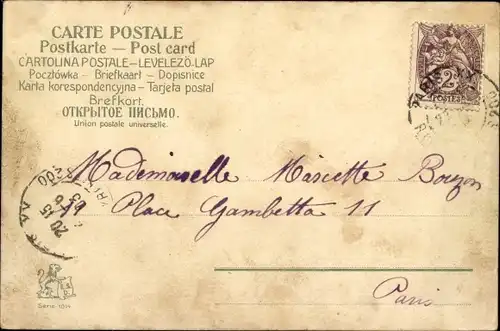 CARTE POSTALE
Postkarte — Post card
CARTOLINA POSTALE – LEVELEZŐ-LAP
Pocztówka – Briefkaart – Dopisnice
Karta korespondencyjna – Tarjeta postal
Brefkort.
ОТКРЫТОЕ ПИСЬМО.
Union postale universelle.
2
POSTES
PARIS
Mademoiselle Mariette Bouzon
11 Place Gambetta 11
Paris
Serie 1014